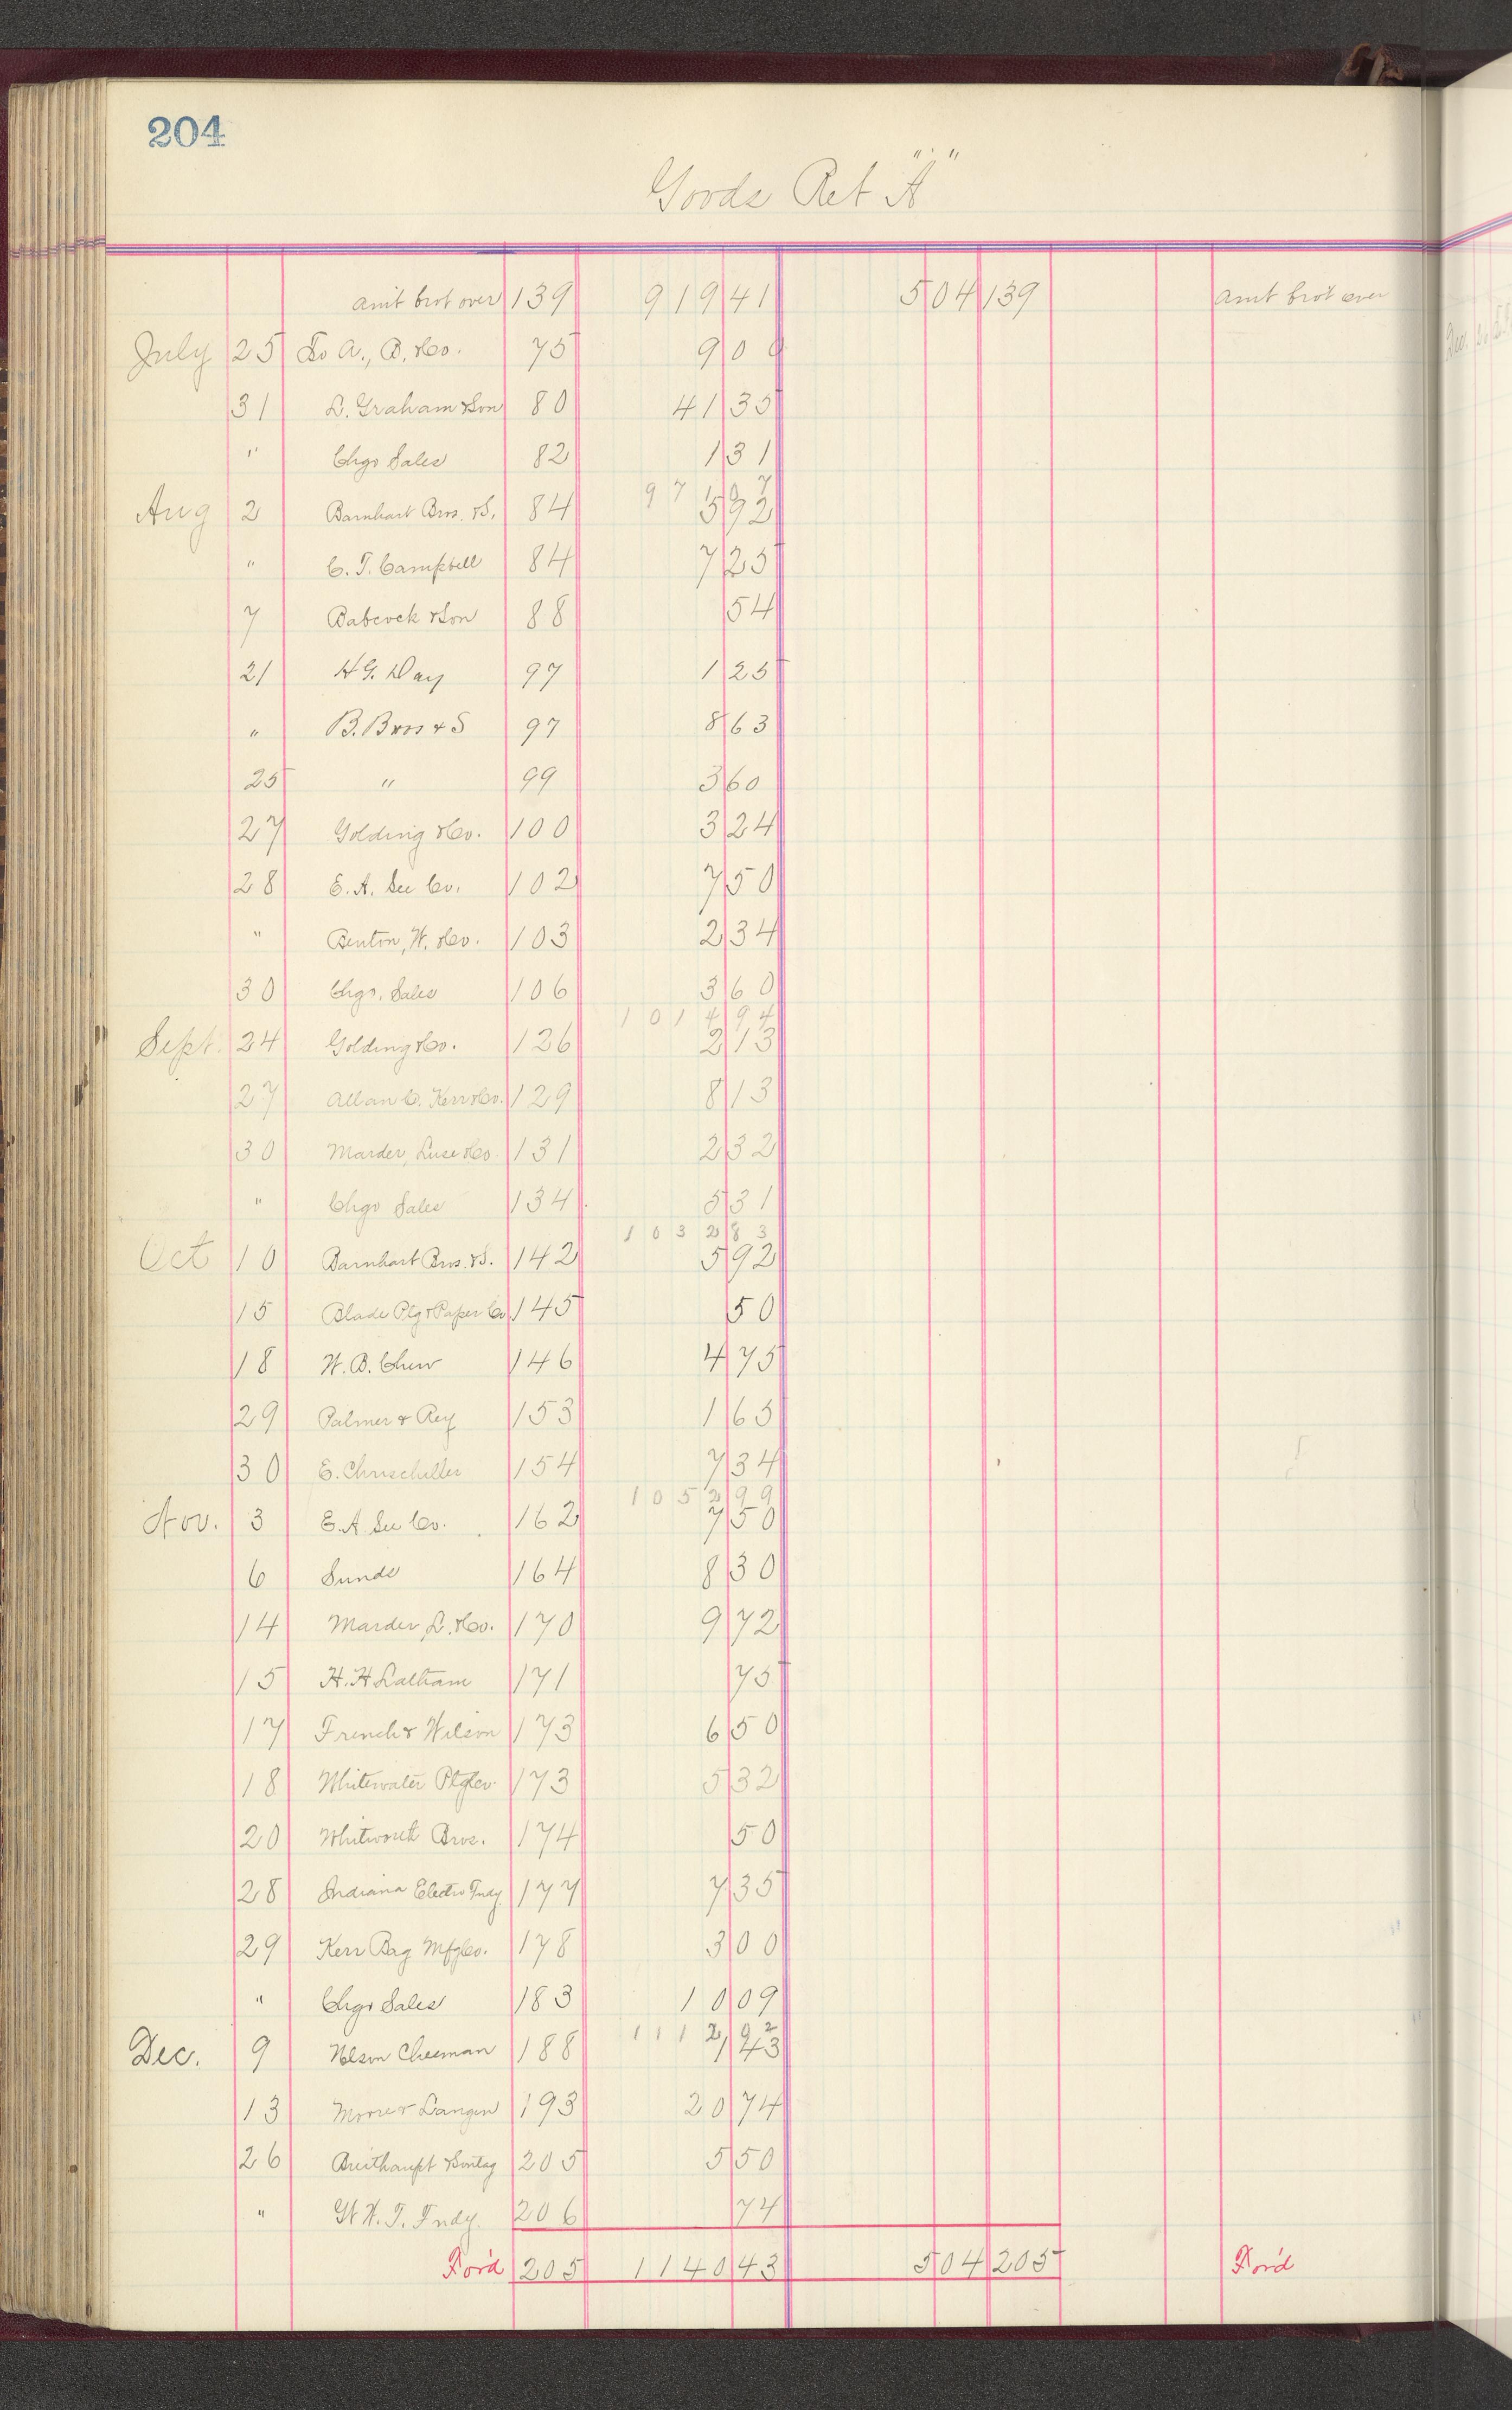 204
Goods Ret "A"
amt brot over 139 919 41 5 04 139 amt brot over
July 25 To A., B, &Co. 75 9 00
31 L. Graham &Son 80 41 35
" Chgo Sales 82 1 31
971 07
Aug 2 Barnhart Bros. &S. 84 5 92
" C. T. Campbell 84 7 25
7 Babcock &Son 88 54
21 H G. Day 97 1 25
" B. Bros & S 97 8 63
25 " 99 3 60
27 Golding &Co. 100 3 24
28 E. A. See Co. 102 7 50
" Benton, W. &Co. 103 2 34
30 Chgo. Sales 106 3 60
1014 94
Sept. 24 Golding &Co. 126 2 13
27 Allan C. Kerr &Co. 129 8 13
30 Marder, Luse &Co. 131 2 32
" Chgo Sales 134 5 31
1032 83
Oct 10 Barnhart Bros. &S. 142 5 92
15 Blade Ptg & Paper Co 145 50
18 W. B. Chew 146 4 75
29 Palmer & Rey 153 1 65
30 E. 154 7 34
1052 99
Nov. 3 E. A See Co. 162 7 50
6 Sunds 164 8 30
14 Marder, L. &Co. 170 9 72
15 H. H Latham 171 75
17 French & Wilson 173 6 50
18 Whitewater Ptg Co. 173 5 32
20 Whitworth Bros. 174 50
28 Indiana Electro Fndy 177 7 35
29 Kerr Bag Mfg Co. 178 3 00
" Chgo Sales 183 10 09
1112 02
Dec. 9 Nelson Cheeman 188 1 43
13 Moore & Langen 193 20 74
26 Breithaupt & 205 5 50
" Gt W. T. Fndy. 206 74
For'd 205 1140 43 5 04 205 For'd